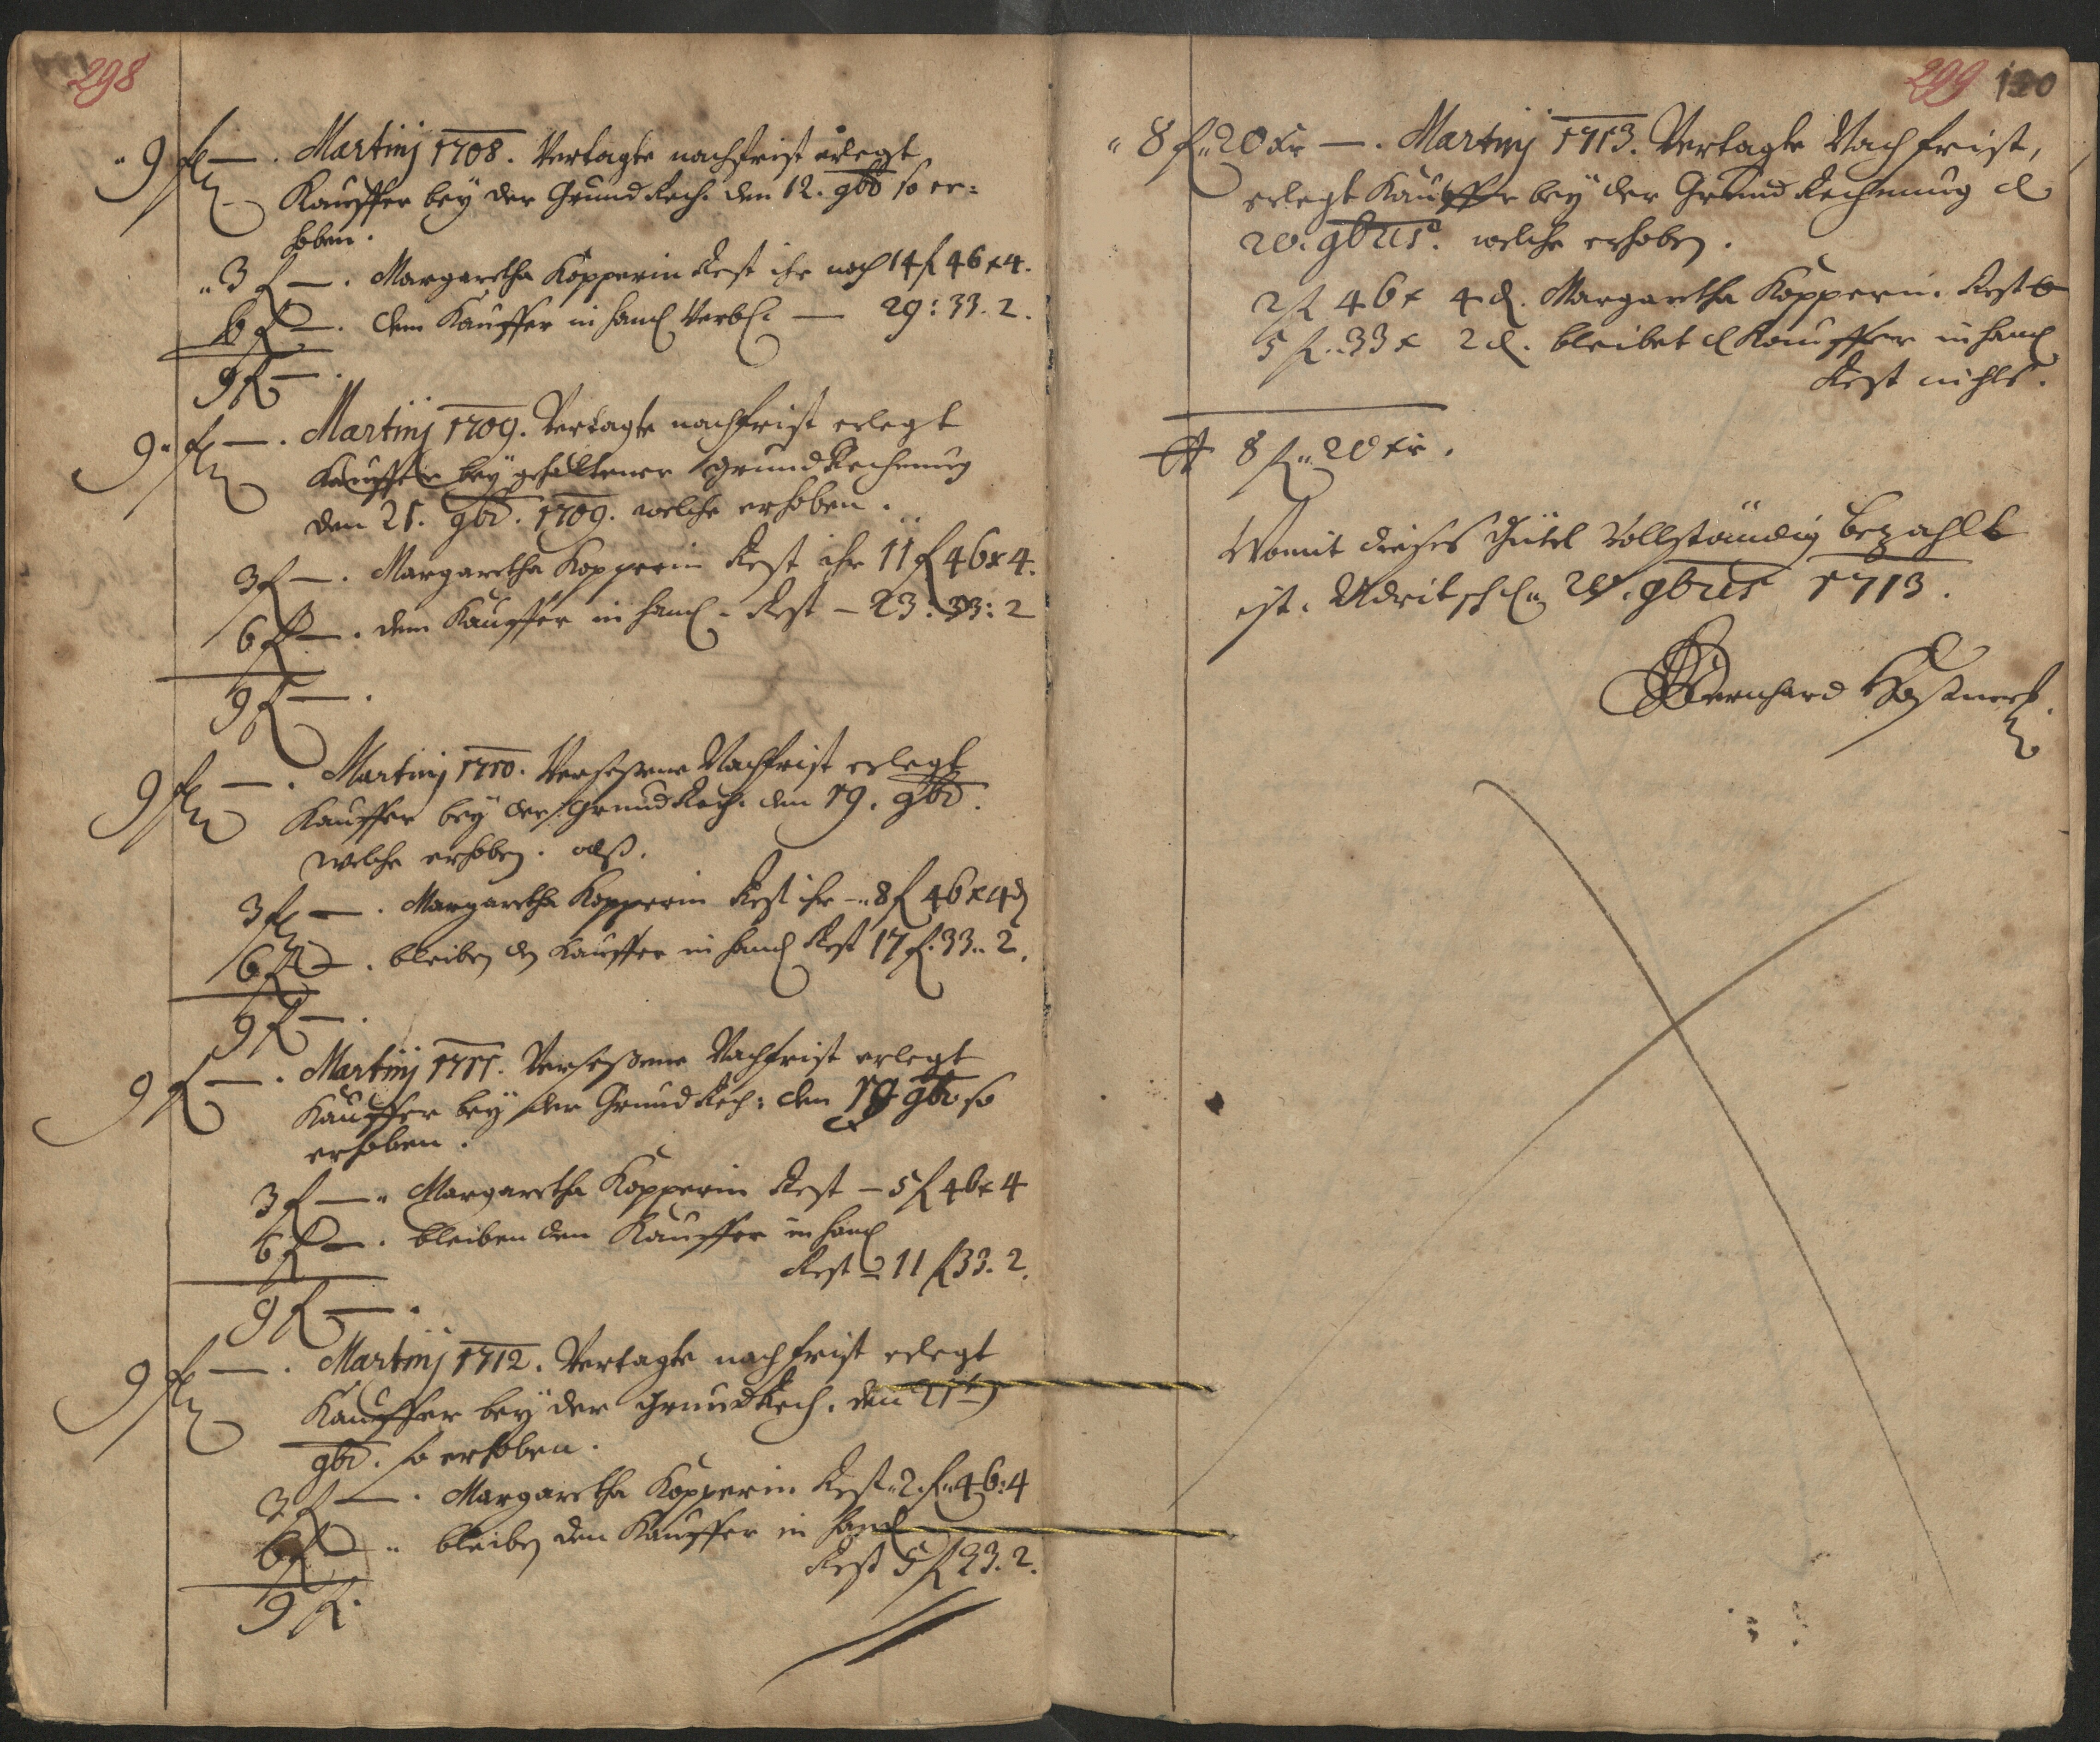 298
9 fl — . Martinj 1708. Vertagte nachfrist erlegt
Kauffer bey der Grund Rech. den 12. 9br. so er=
hoben.
3 fl — . Margaretha Kopperin Rest ihr noch 14 fl 46 x 4.
6 fl — . dem Kauffer in Hand Verbl. — 29 : 33. 2.
9 fl — .
9 fl — . Martinj 1709. Vertagte nachfrist erlegt
Kauffer bey gehaltener Grund Rechnung
den 21. 9br. 1709. welche erhoben.
3 fl — . Margaretha Kopperin Rest ihr 11 fl 46 x 4.
6 fl — . dem Kauffer in Hand. Rest — 23 : 33 : 2
9 fl — .
9 fl — . Martinj 1710. Versessene Nachfrist erlegt
Kauffer bey der Grund Rech. den 19. 9br.
welche erhoben. alß.
3 fl — . Margaretha Kopperin Rest ihr — 8 fl 46 x 4 d
6 fl — . bleiben den Kauffer in Hand Rest 17 fl. 33. 2.
9 fl — .
9 fl — . Martinj 1711. Versessene Nachfrist erlegt
Kauffer bey der Grund Rech: den 19 9br so
erhoben.
3 fl — . Margaretha Kopperin Rest — 5 fl 46 x 4
6 fl — . bleiben den Kauffer in Hand
Rest — 11 fl 33. 2.
9 fl — .
9 fl — . Martinj 1712. Vertagte nachfrist erlegt
Kauffer bey der Grund Rech. den 21ten
9br. so erhoben.
3 fl — . Margaretha Kopperin Rest 2 fl 46 : 4
6 fl — bleiben den Kauffer in Hand
Rest 5 fl 33. 2.
9 fl.
299 120
8 fl 20 xr — . Martinj 1713. Vertagte Nachfrist,
erlegt Kauffer bey der Grund Rechnung d
20. 9bris. welche erhoben.
2 fl 46 x 4 d. Margaretha Kopperin. Rest 0
5 fl. 33 x 2 d. bleibet d Kauffer in Hand
Rest nichts.
8 fl 20 xr.
Womit dieses Gütel Vollständig bezahlt
ist. Udritsch den 20. 9bris 1713.
Bernhard